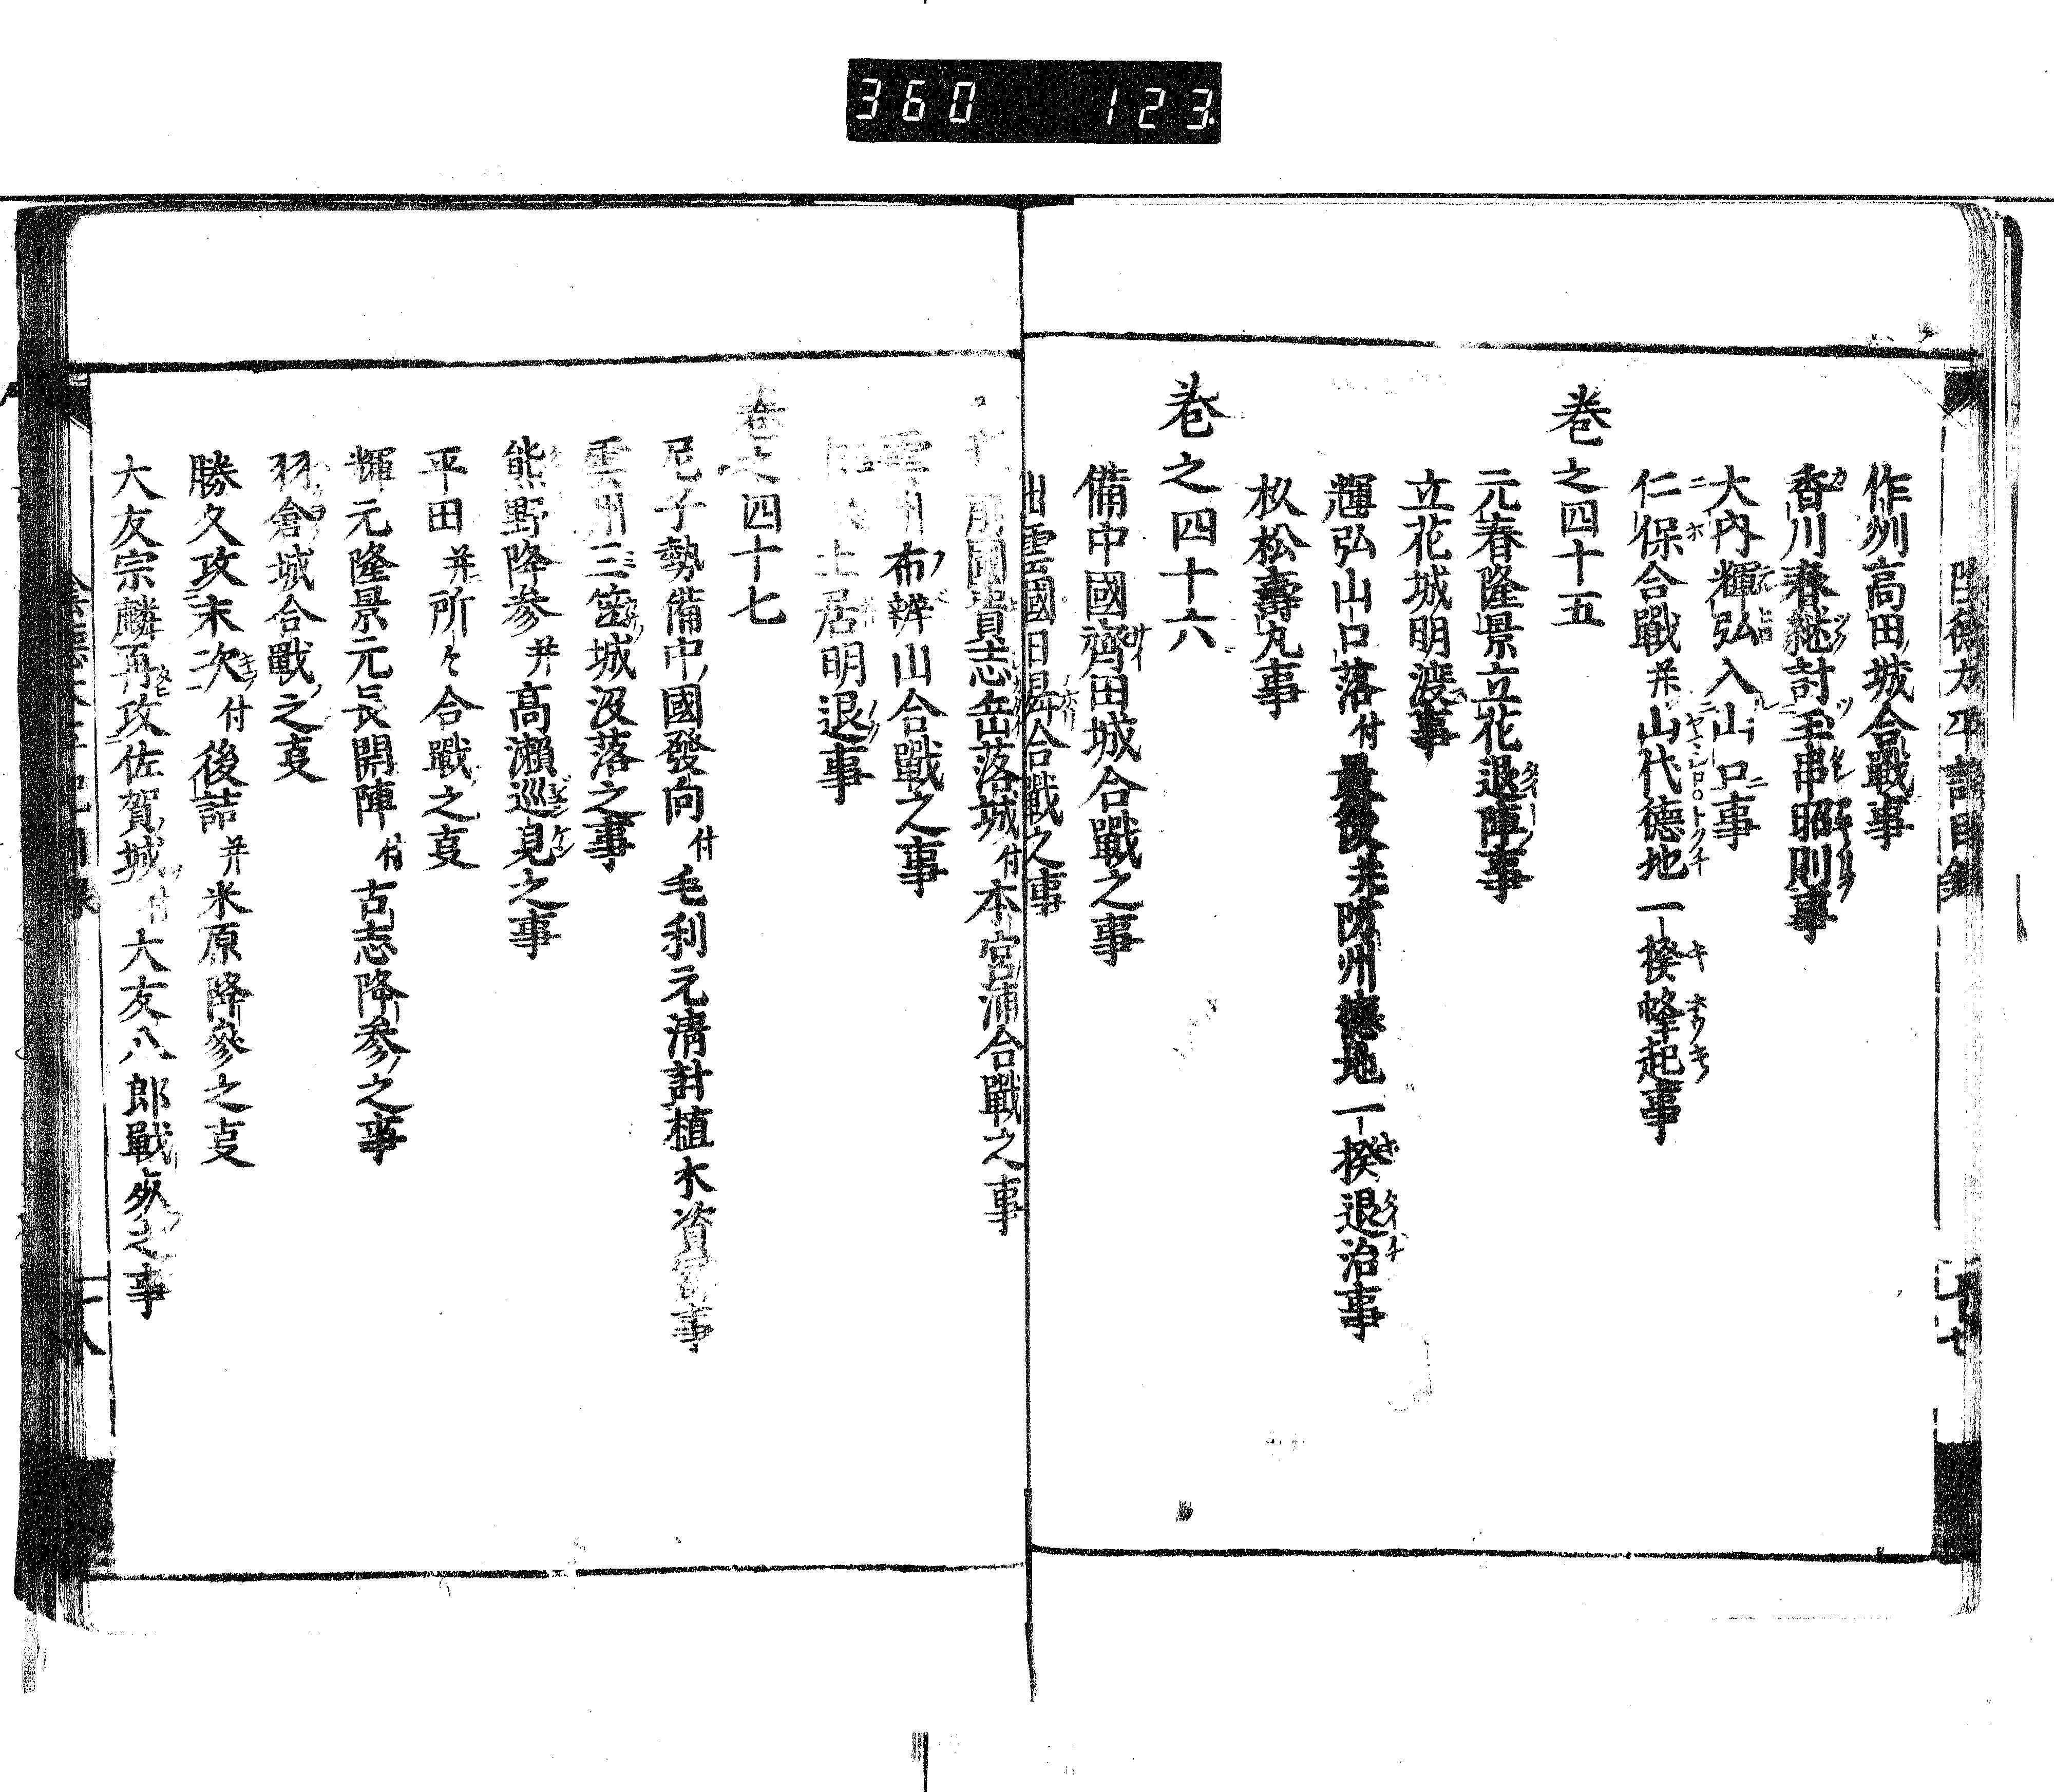 360 123
作州高田城合戰事
香川春継討玉串昭則事
大内輝弘入山口事
仁保合戰并山代德地一揆蜂起事
巻之四十五
元春隆景立花退陣事
立花城明渡事
輝弘山口落付最後并防州德地一揆退治事
杦松壽丸事
巻之四十六
備中國齊田城合戰之事
出雲國日昇合戰之事
前國貴志岳落城付本宮浦合戰之事
雲州布辨山合戰之事
土居明退事
巻之四十七
尼子勢備中國發向付毛利元清討植木資富事
雲州三笠城没落之事
熊野降参并高瀬巡見之事
平田并所々合戰之叓
輝元隆景元長開陣付古志降参之事
羽倉城合戰之叓
勝久攻末次付後詰并米原降參之叓
大友宗麟再攻佐賀城付大友八郎戰死之事
十八